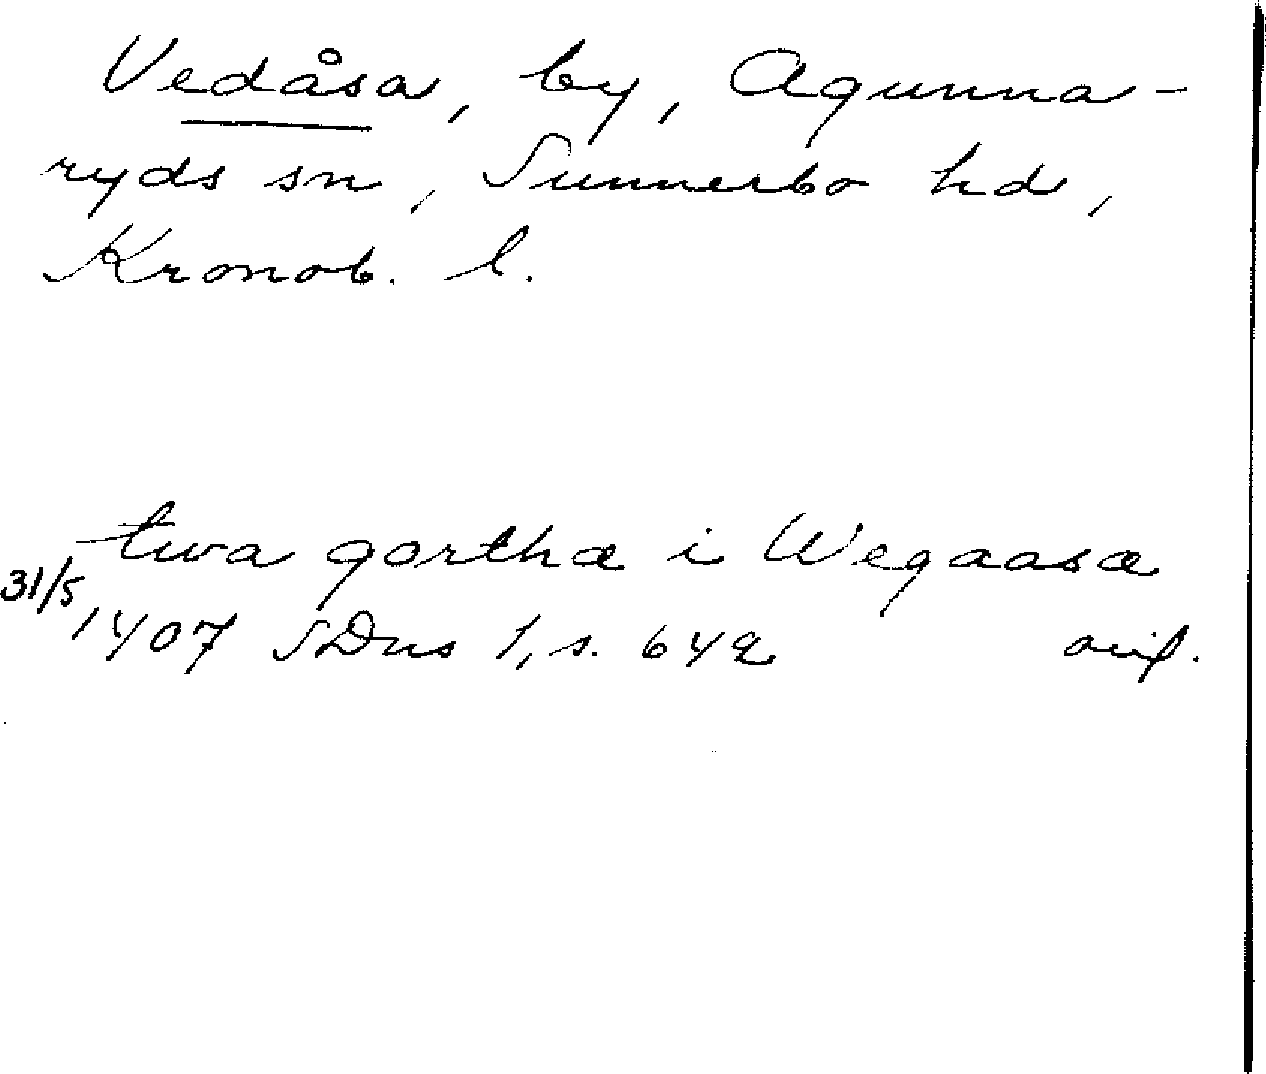 Vedåsa, by, Agunna-
ryds sn, Sunnerbo hd,
Kronob. l.
twa gorthæ i Wegaasæ
31/5 1407 SDns 1, s. 642 avif.